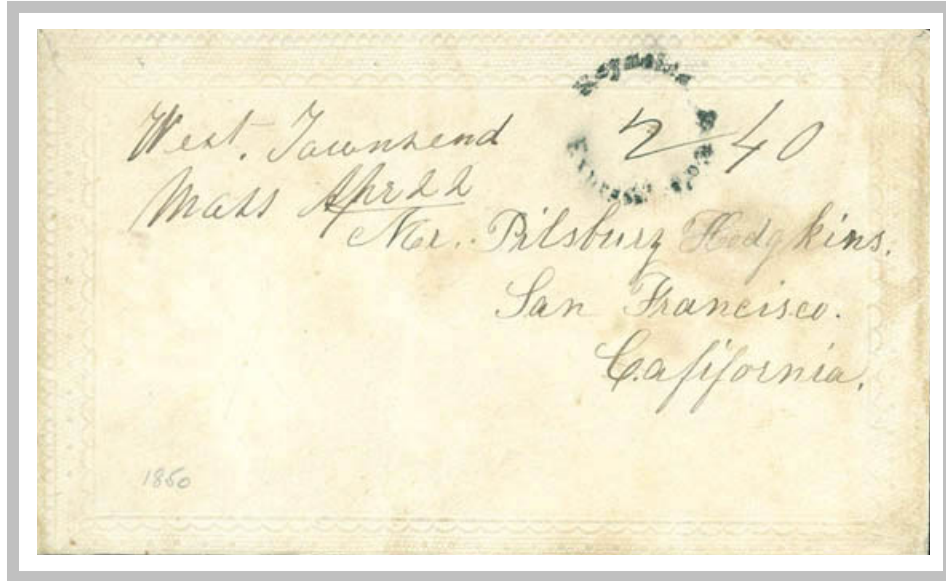 West. Townsend
Mass Apr 22
2 40
Reynolds & Co's Express
Mr. Pilsbury Hodgkins.
San Francisco.
California.
1850